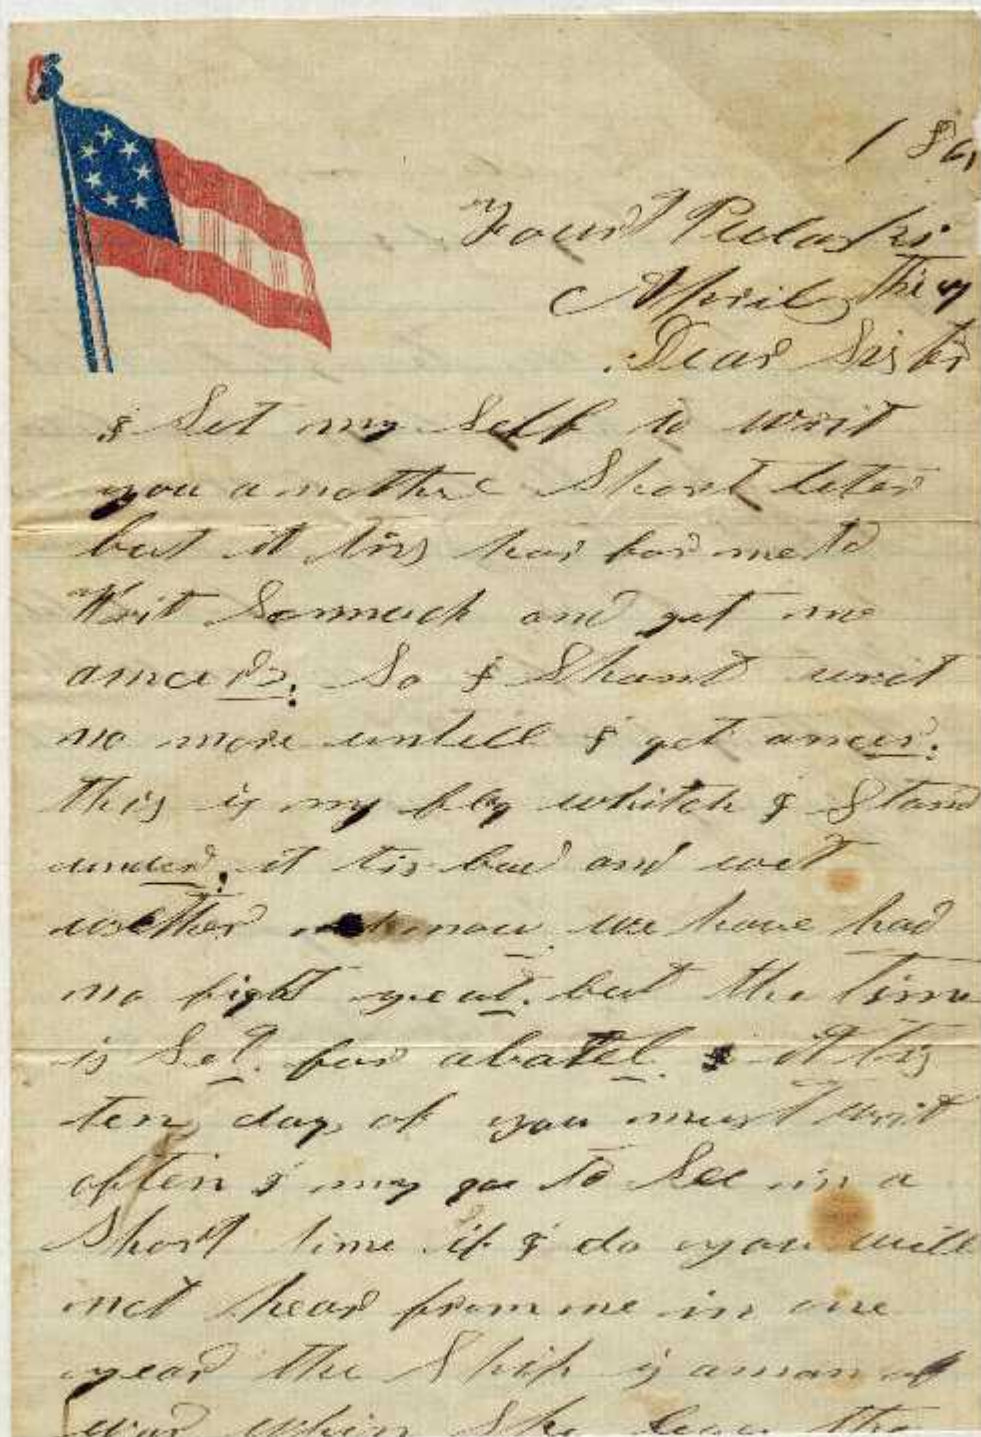 186
Fourt Pulaski
April The 7
Dear Sister
I Set my Self to writ
you a nother Short leter
but it tis har for me to
Writ So much and get no
ancer. So I Shant writ
no more untill I get ancer.
this is my flag whitch I Stand
under. it tis bad and wet
wether now we have had
no fight yeat. but the time
is Set. for a batel. it tis
ten days of you must writ
often I my go to See in a
Short time if I do you will
not hear from me in one
year the Ship is a man of
war when She leav the